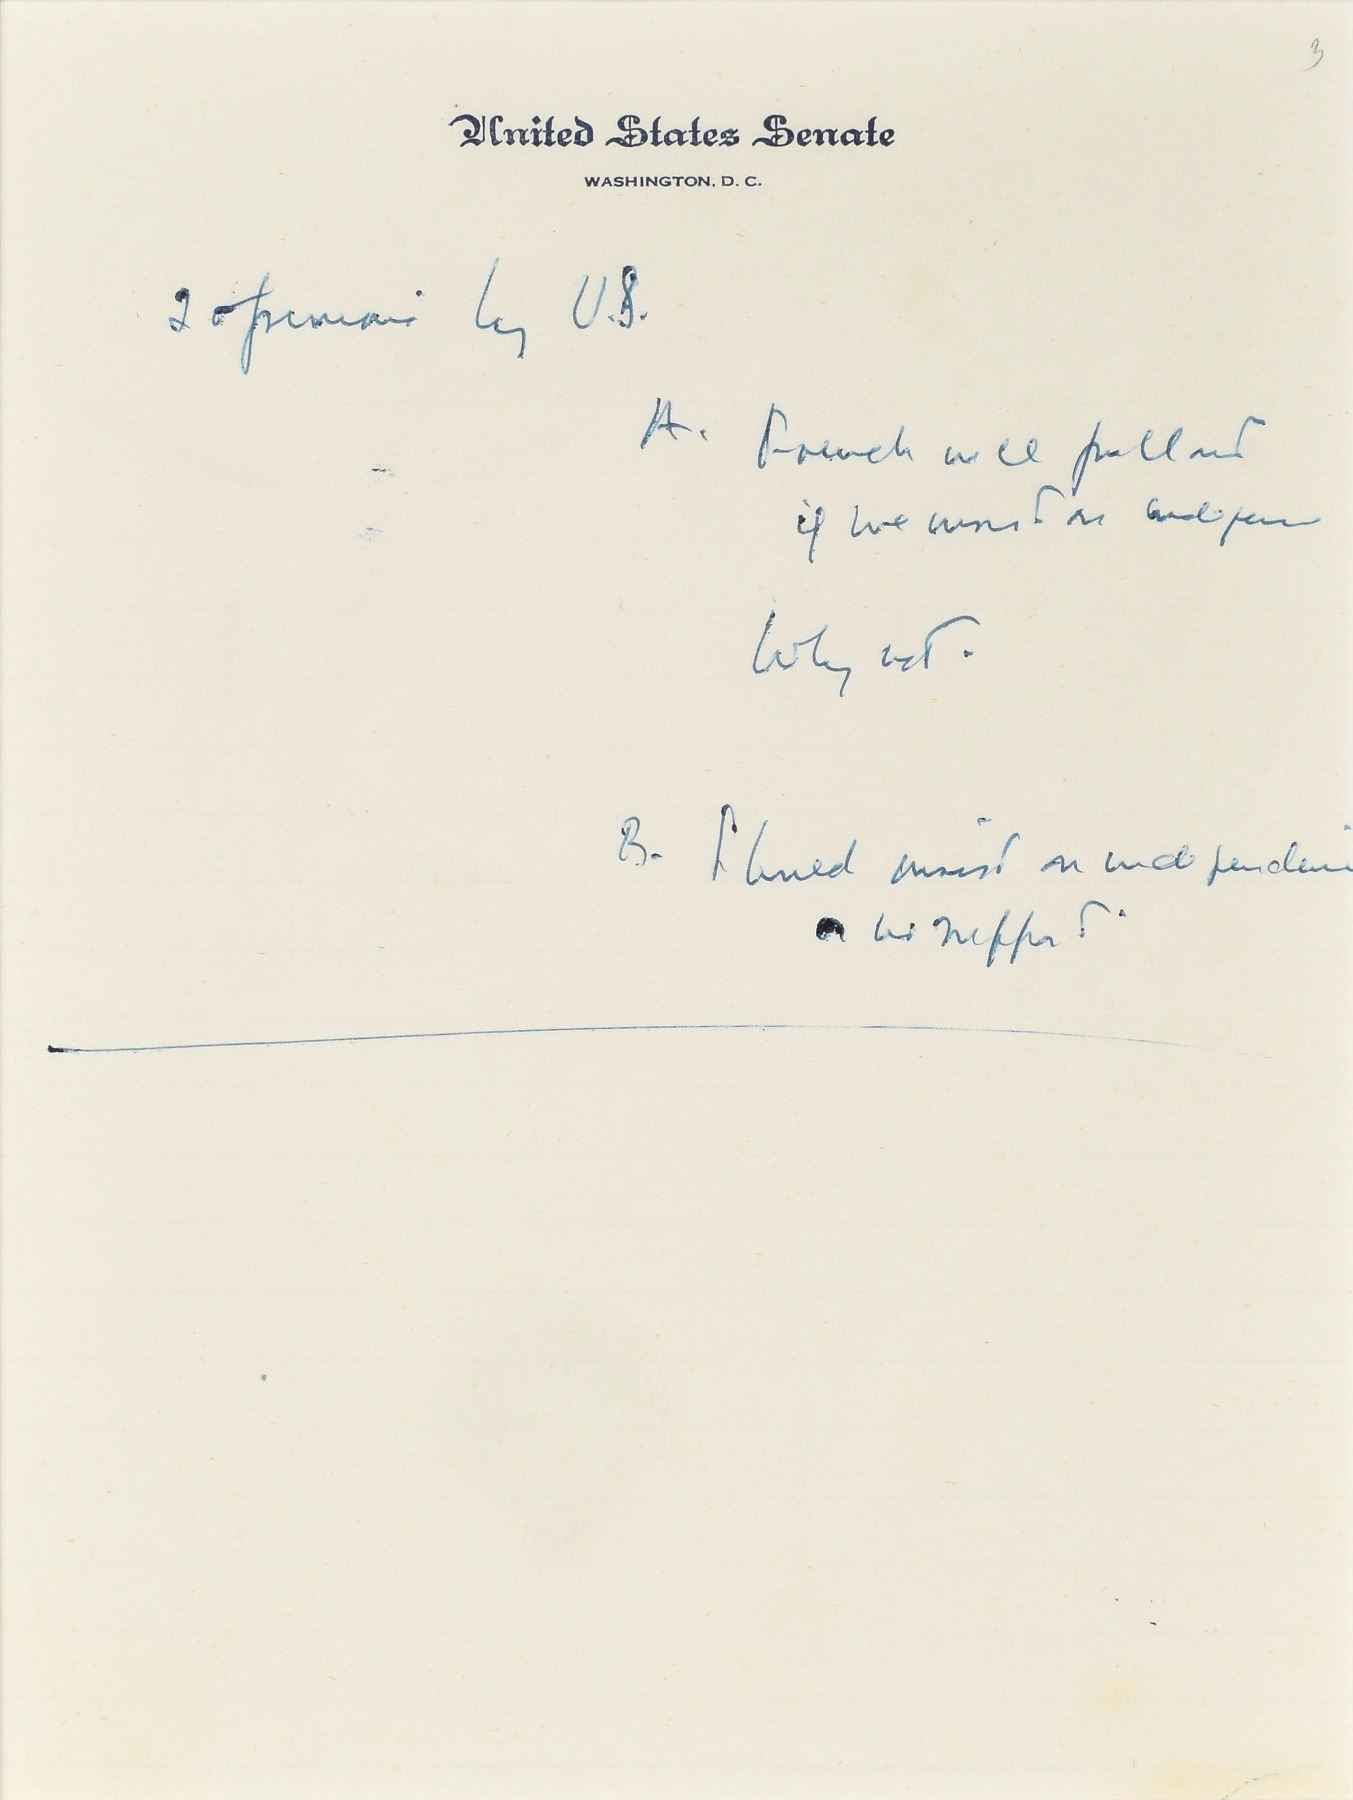 3
United States Senate
WASHINGTON, D. C.
2 by U.S.
A. French will pull out
if we insist on indepen
Why not.
B. Should insist on independen
or no support.